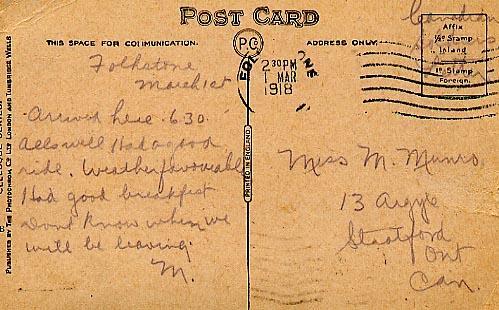 POST CARD
THIS SPACE FOR COMMUNICATION.
ADDRESS ONLY.
P.C.
Affix
½d Stamp
Inland
1d Stamp
Foreign.
Canadian
2 30PM
1 MAR
1918
Folkstone
March 1st
Arrived here 6.30
All's well Had a good
ride. Weather favourable
Had good breakfast
Dont know when we
will be leaving.
M.
Miss M. Munro
13 Argyle
Stratford
Ont
Can.
PRINTED IN ENGLAND
PUBLISHED BY THE PHOTOCHROM CO LTD LONDON AND TUNBRIDGE WELLS